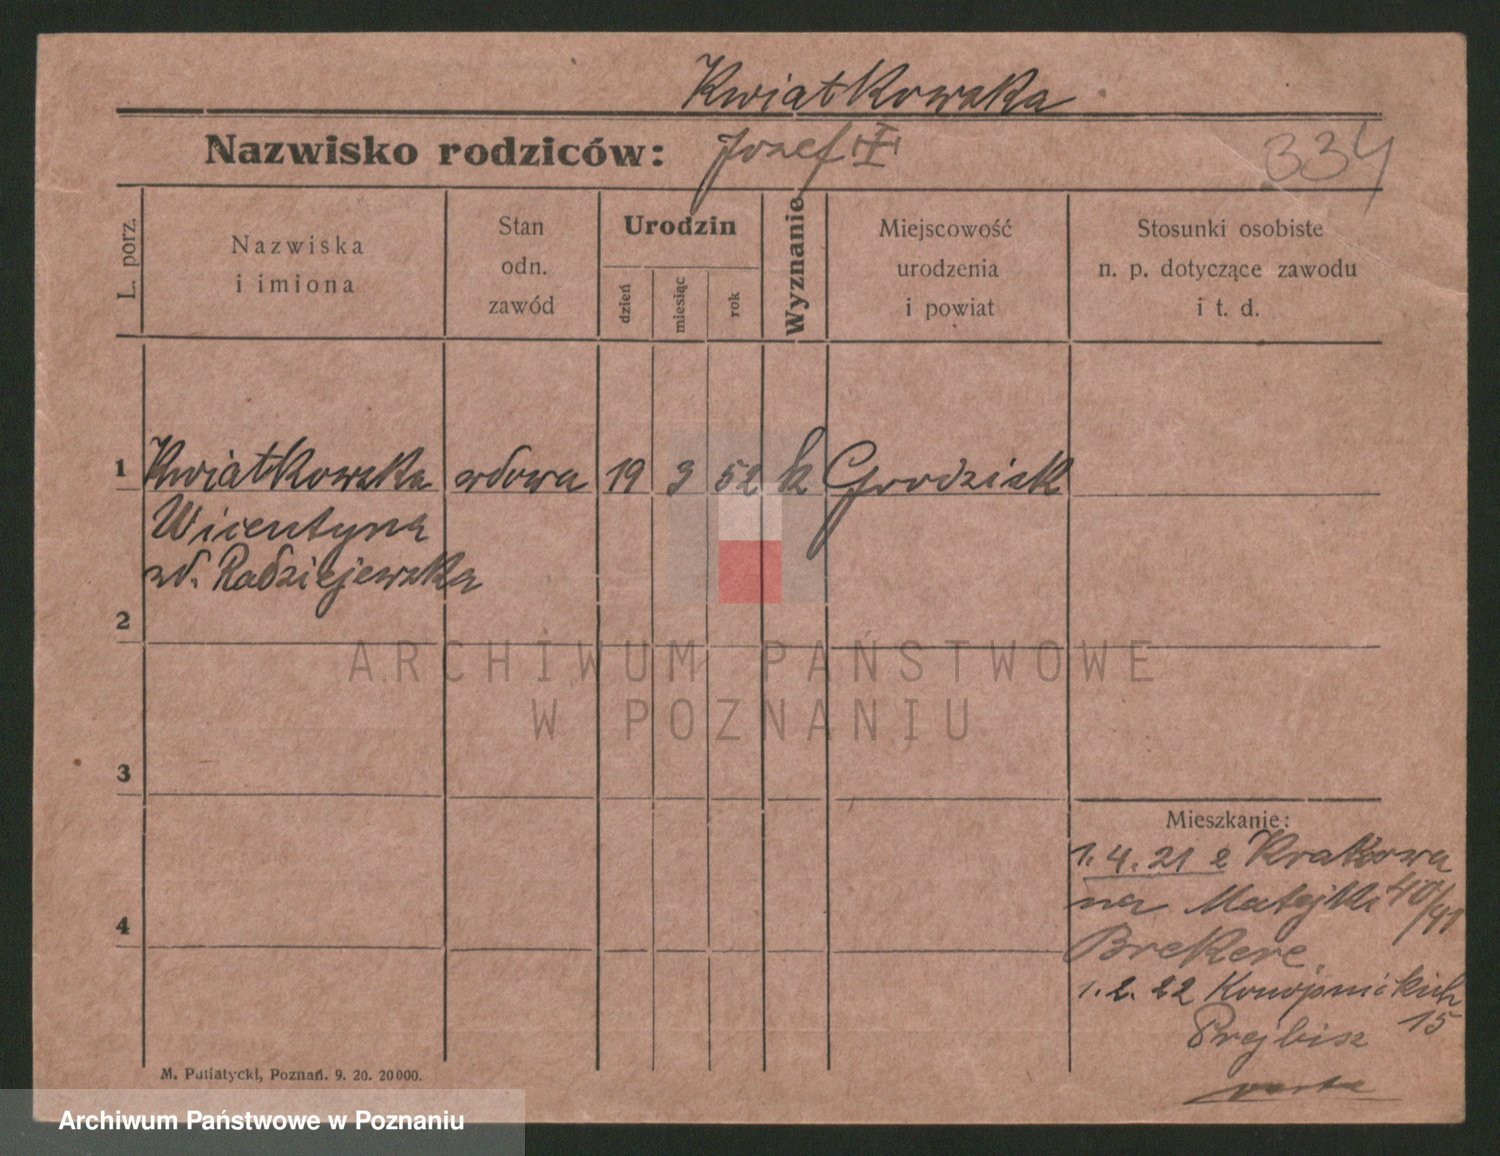 Kwiatkowska
Nazwisko rodziców: Jozef
334
L. porz.
Nazwiska
i imiona
Stan
odn.
zawód
Urodzin
dzień
miesiąc
rok
Wyznanie
Miejscowość
urodzenia
i powiat
Stosunki osobiste
n. p. dotyczące zawodu
i t. d.
1 Kwiatkowska wdowa 19 3 52 k Grodzisk
Wicentyna
zd. Radziejewska
2
ARCHIWUM PAŃSTWOWE
W POZNANIU
3
Mieszkanie:
1.4.21 z Krakowa
na Matejki 40/41
4
1.2.22 Konopnickich
15
verte
M. Putiatycki, Poznań. 9. 20. 20000.
Archiwum Państwowe w Poznaniu